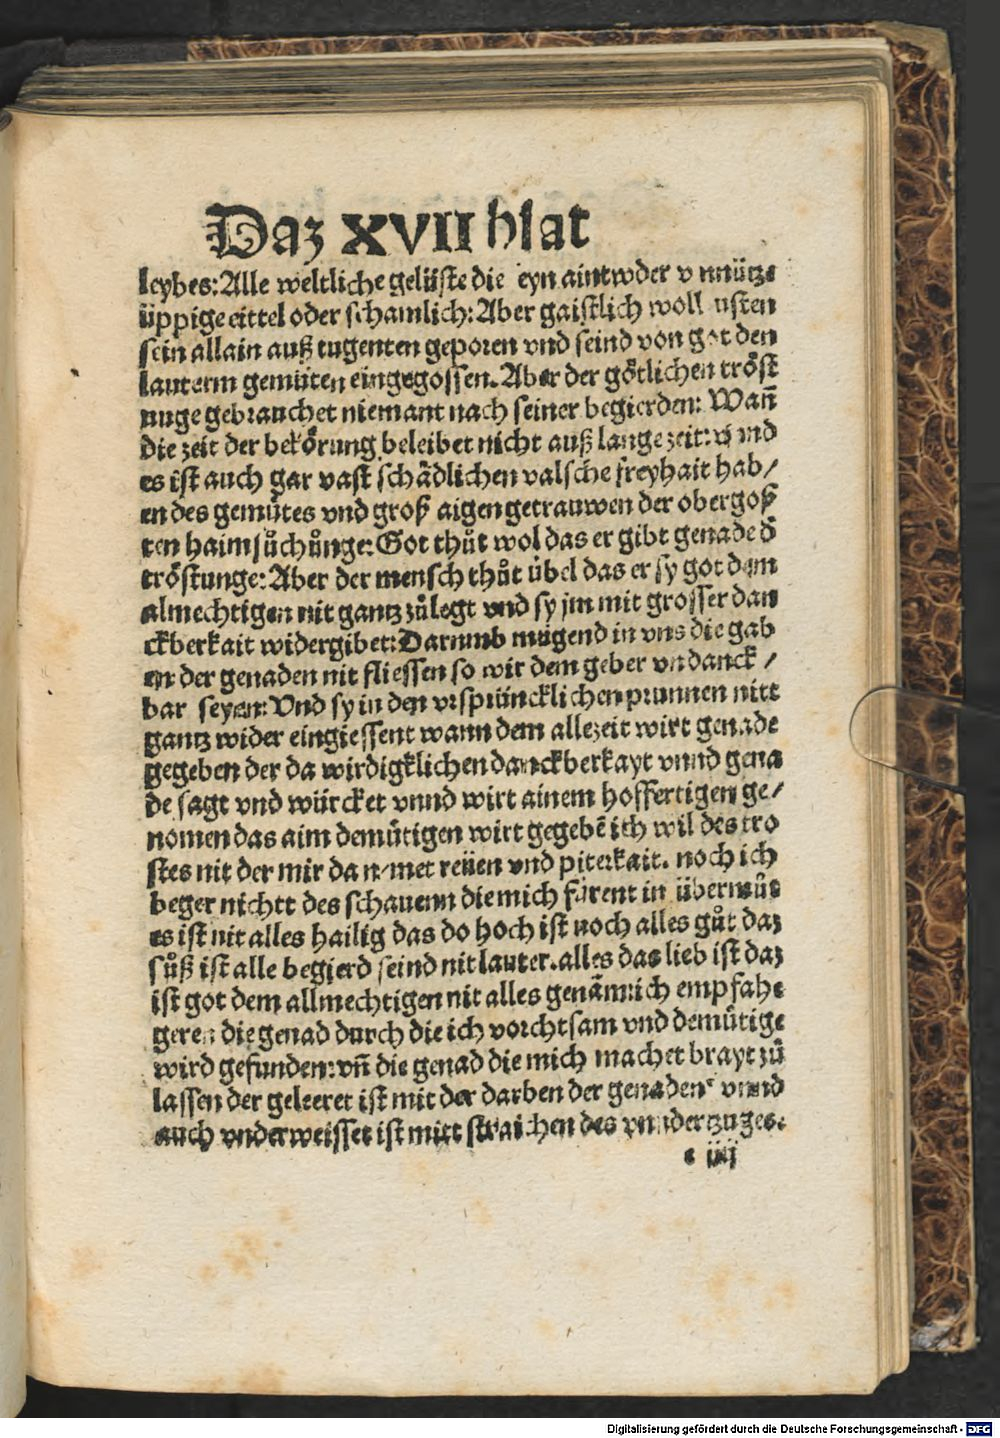 Daz XVII blat
leybes: Alle weltliche gelüste die eyn aintwder vnnütze
üppige eittel oder schamlich: Aber gaistlich wollusten
sein allain auß tugenten geporen vnd seind von got den
lauterm gemüten eingegossen. Aber der götlichen tröst
nuge gebrauchet niemant nach seiner begierden: Wañ
die zeit der bekörung beleibet nicht auß lange zeit: vnnd
es ist auch gar vast schädlichen valsche freyhait hab/
en des gemütes vnd groß aigen getrauwen der obergoß
ten haimsůchůnge: Got thůt wol das er gibt genade d̄
tröstunge: Aber der mensch thůt übel das er sy got dem
almechtigen nit gantz zůlegt vnd sy jm mit grosser dan
ckberkait widergibet: Darumb mügend in vns die gab
en der genaden nit fliessen so wir dem geber vndanck /
bar seyen: Vnd sy in den vrsprüncklichen prunnen nitt
gantz wider eingiessent wann dem allezeit wirt genade
gegeben der da wirdigklichen danckberkayt vnnd gena
de sagt vnd würcket vnnd wirt ainem hoffertigen ge/
nomen das aim demütigen wirt gegebē ich wil des tro
stes nit der mir da n met reüen vnd piterkait. noch ich
beger nichtt des schauenn die mich fürent in übermůt
es ist nit alles hailig das do hoch ist noch alles gůt daz
sůß ist alle begierd seind nit lauter. alles das lieb ist daz
ist got dem allmechtigen nit alles genäm: ich empfahe
geren die genad durch die ich vorchtsam vnd demütige
wird gefunden: vñ die genad die mich machet brayt zů
lassen der geleeret ist mit der darben der genaden vnnd
auch vnderweisset ist mitt straichen des
iiij
Digitalisierung gefördert durch die Deutsche Forschungsgemeinschaft - DFG